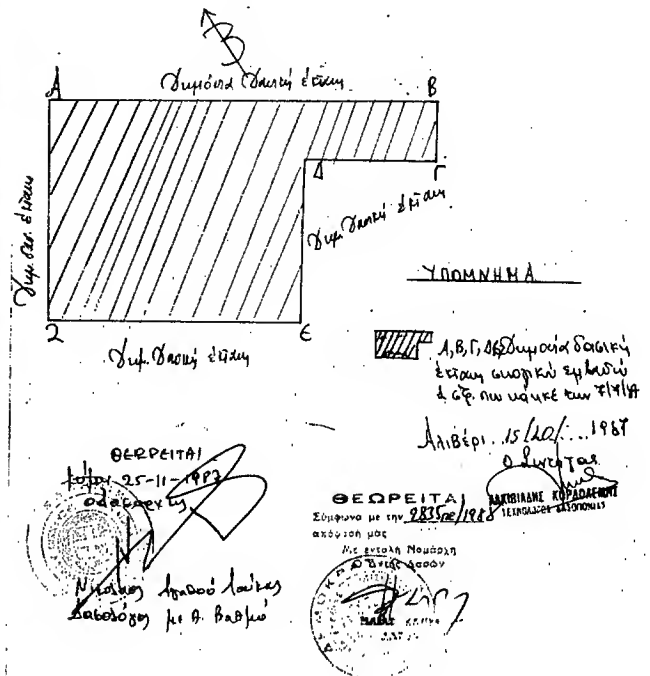 Β
Δημόσια Δασική έκταση
Α
Β
Δ
Γ
Δημ. δασ. έκταση
Δημ. Δασική έκταση
Ζ
Ε
Δημ. Δασική έκταση
ΥΠΟΜΝΗΜΑ
Α, Β, Γ, Δ, Ε, Ζ Δημοσία δασική
έκταση συνολικού εμβαδού
στρ. που κάηκε την
Αλιβέρι 15/10/ 1987
Ο Συντάξας
ΑΛΚΙΒΙΑΔΗΣ
ΤΕΧΝΟΛΟΓΟΣ ΔΑΣΟΠΟΝΙΑΣ
ΘΕΩΡΕΙΤΑΙ
25-11-1987
Ο Δασάρχης
Νικόλαος
Δασολόγος με Α. Βαθμό
ΘΕΩΡΕΙΤΑΙ
Σύμφωνα με την 2835
απόφαση μας
Με εντολή Νομάρχη
Ο Δ/ντής Δασών